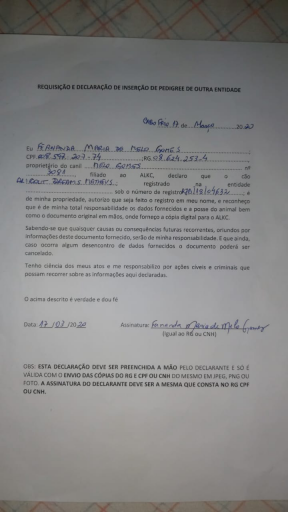 REQUISIÇÃO E DECLARAÇÃO DE INSERÇÃO DE PEDIGREE DE OUTRA ENTIDADE
17 de Março 2020
Eu FERNANDA MARIA DE MELO GOMES
CPF RG
proprietário do canil MELO GOMES nº
3081 filiado ao ALKC, declaro que o cão
DREAM'S MATHEUS registrado na entidade
sob o número de registro é
de minha propriedade, autorizo que seja feito o registro em meu nome, e reconheço
que é de minha total responsabilidade os dados fornecidos e a posse do animal bem
como o documento original em mãos, onde forneço a cópia digital para o ALKC.
Sabendo-se que quaisquer causas ou consequências futuras recorrentes, oriundos por
informações deste documento fornecido, serão de minha responsabilidade. E que ainda,
caso ocorra algum desencontro de dados fornecidos o documento poderá ser
cancelado.
Tenho ciência dos meus atos e me responsabilizo por ações cíveis e criminais que
possam recorrer sobre as informações aqui declaradas.
O acima descrito é verdade e dou fé
Data: 17 /03 /2020 Assinatura: Fernanda Maria de Melo Gomes
(Igual ao RG ou CNH)
OBS: ESTA DECLARAÇÃO DEVE SER PREENCHIDA A MÃO PELO DECLARANTE E SÓ É
VÁLIDA COM O ENVIO DAS CÓPIAS DO RG E CPF OU CNH DO MESMO EM JPEG, PNG OU
FOTO. A ASSINATURA DO DECLARANTE DEVE SER A MESMA QUE CONSTA NO RG CPF
OU CNH.